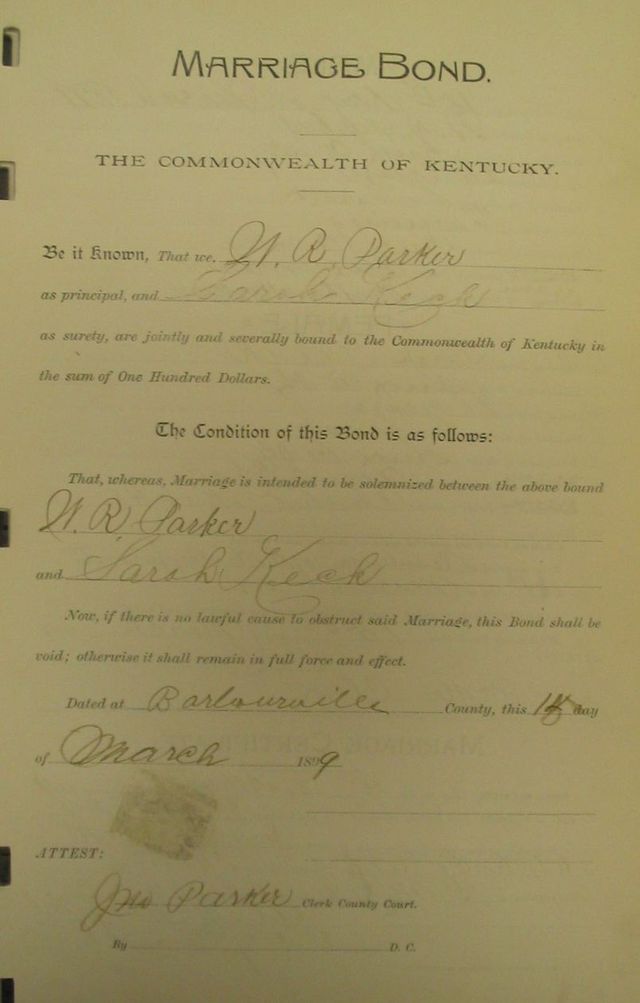 MARRIAGE BOND.
THE COMMONWEALTH OF KENTUCKY.
Be it Known, That we, W. R. Parker
as principal, and Sarah Keck
as surety, are jointly and severally bound to the Commonwealth of Kentucky in
the sum of One Hundred Dollars.
The Condition of this Bond is as follows:
That, whereas, Marriage is intended to be solemnized between the above bound
W. R. Parker
and Sarah Keck
Now, if there is no lawful cause to obstruct said Marriage, this Bond shall be
void; otherwise it shall remain in full force and effect.
Dated at Barbourville County, this day
of March 1899
ATTEST:
Jno Parker Clerk County Court.
By D. C.